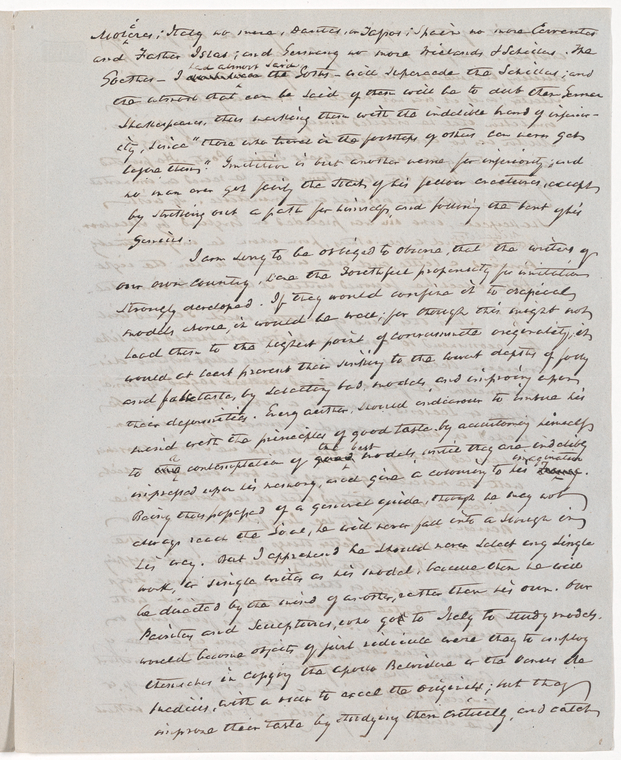 Molières; Italy no more, Dantes, or Tassos; Spain no more Cervantes
and Father Islas; and Germany no more Wielands & Schillers. The
Goethes – I had almost said the Goths – will supercede the Schillers; and
the utmost that can be said of them will be to dub them German
Shakespeares, thus marking them with the indelible brand of inferior-
ity, since "those who travel in the footsteps of others can never get
before them." Imitation is but another name for inferiority; and
no man ever got fairly the start of his fellow creatures, except
by striking out a path for himself, and following the bent of his
Genius.
I am sorry to be obliged to observe, that the writers of
our own country, have the Youthful propensity for imitation
strongly developed. If they would confine it to classical
models alone, it would be well; for though this might not
lead them to the highest point of consummate originality, it
would at least prevent their sinking to the lowest depths of folly
and false taste, by selecting bad models, and improving upon
their deformities. Every author, should endeavour to imbue his
mind with the principles of good taste by accustoming himself
to a contemplation of the best models, until they are indelibly
impressed upon his memory, and give a colouring to his imagination.
Being thus possessed of a general guide, though he may not
always reach the Goal, he will never fall into a slough in
his way. But I apprehend he should never select any single
work, or single writer as his model, because then he will
be directed by the mind of another, rather than his own. Our
Painters and Sculptures, who go to Italy to study models.
would become objects of just ridicule were they to employ
themselves in copying the Apollo Belvidere or the Venus de
Medicis, with a view to excel the originals; but they
improve their taste by studying them critically, and catch